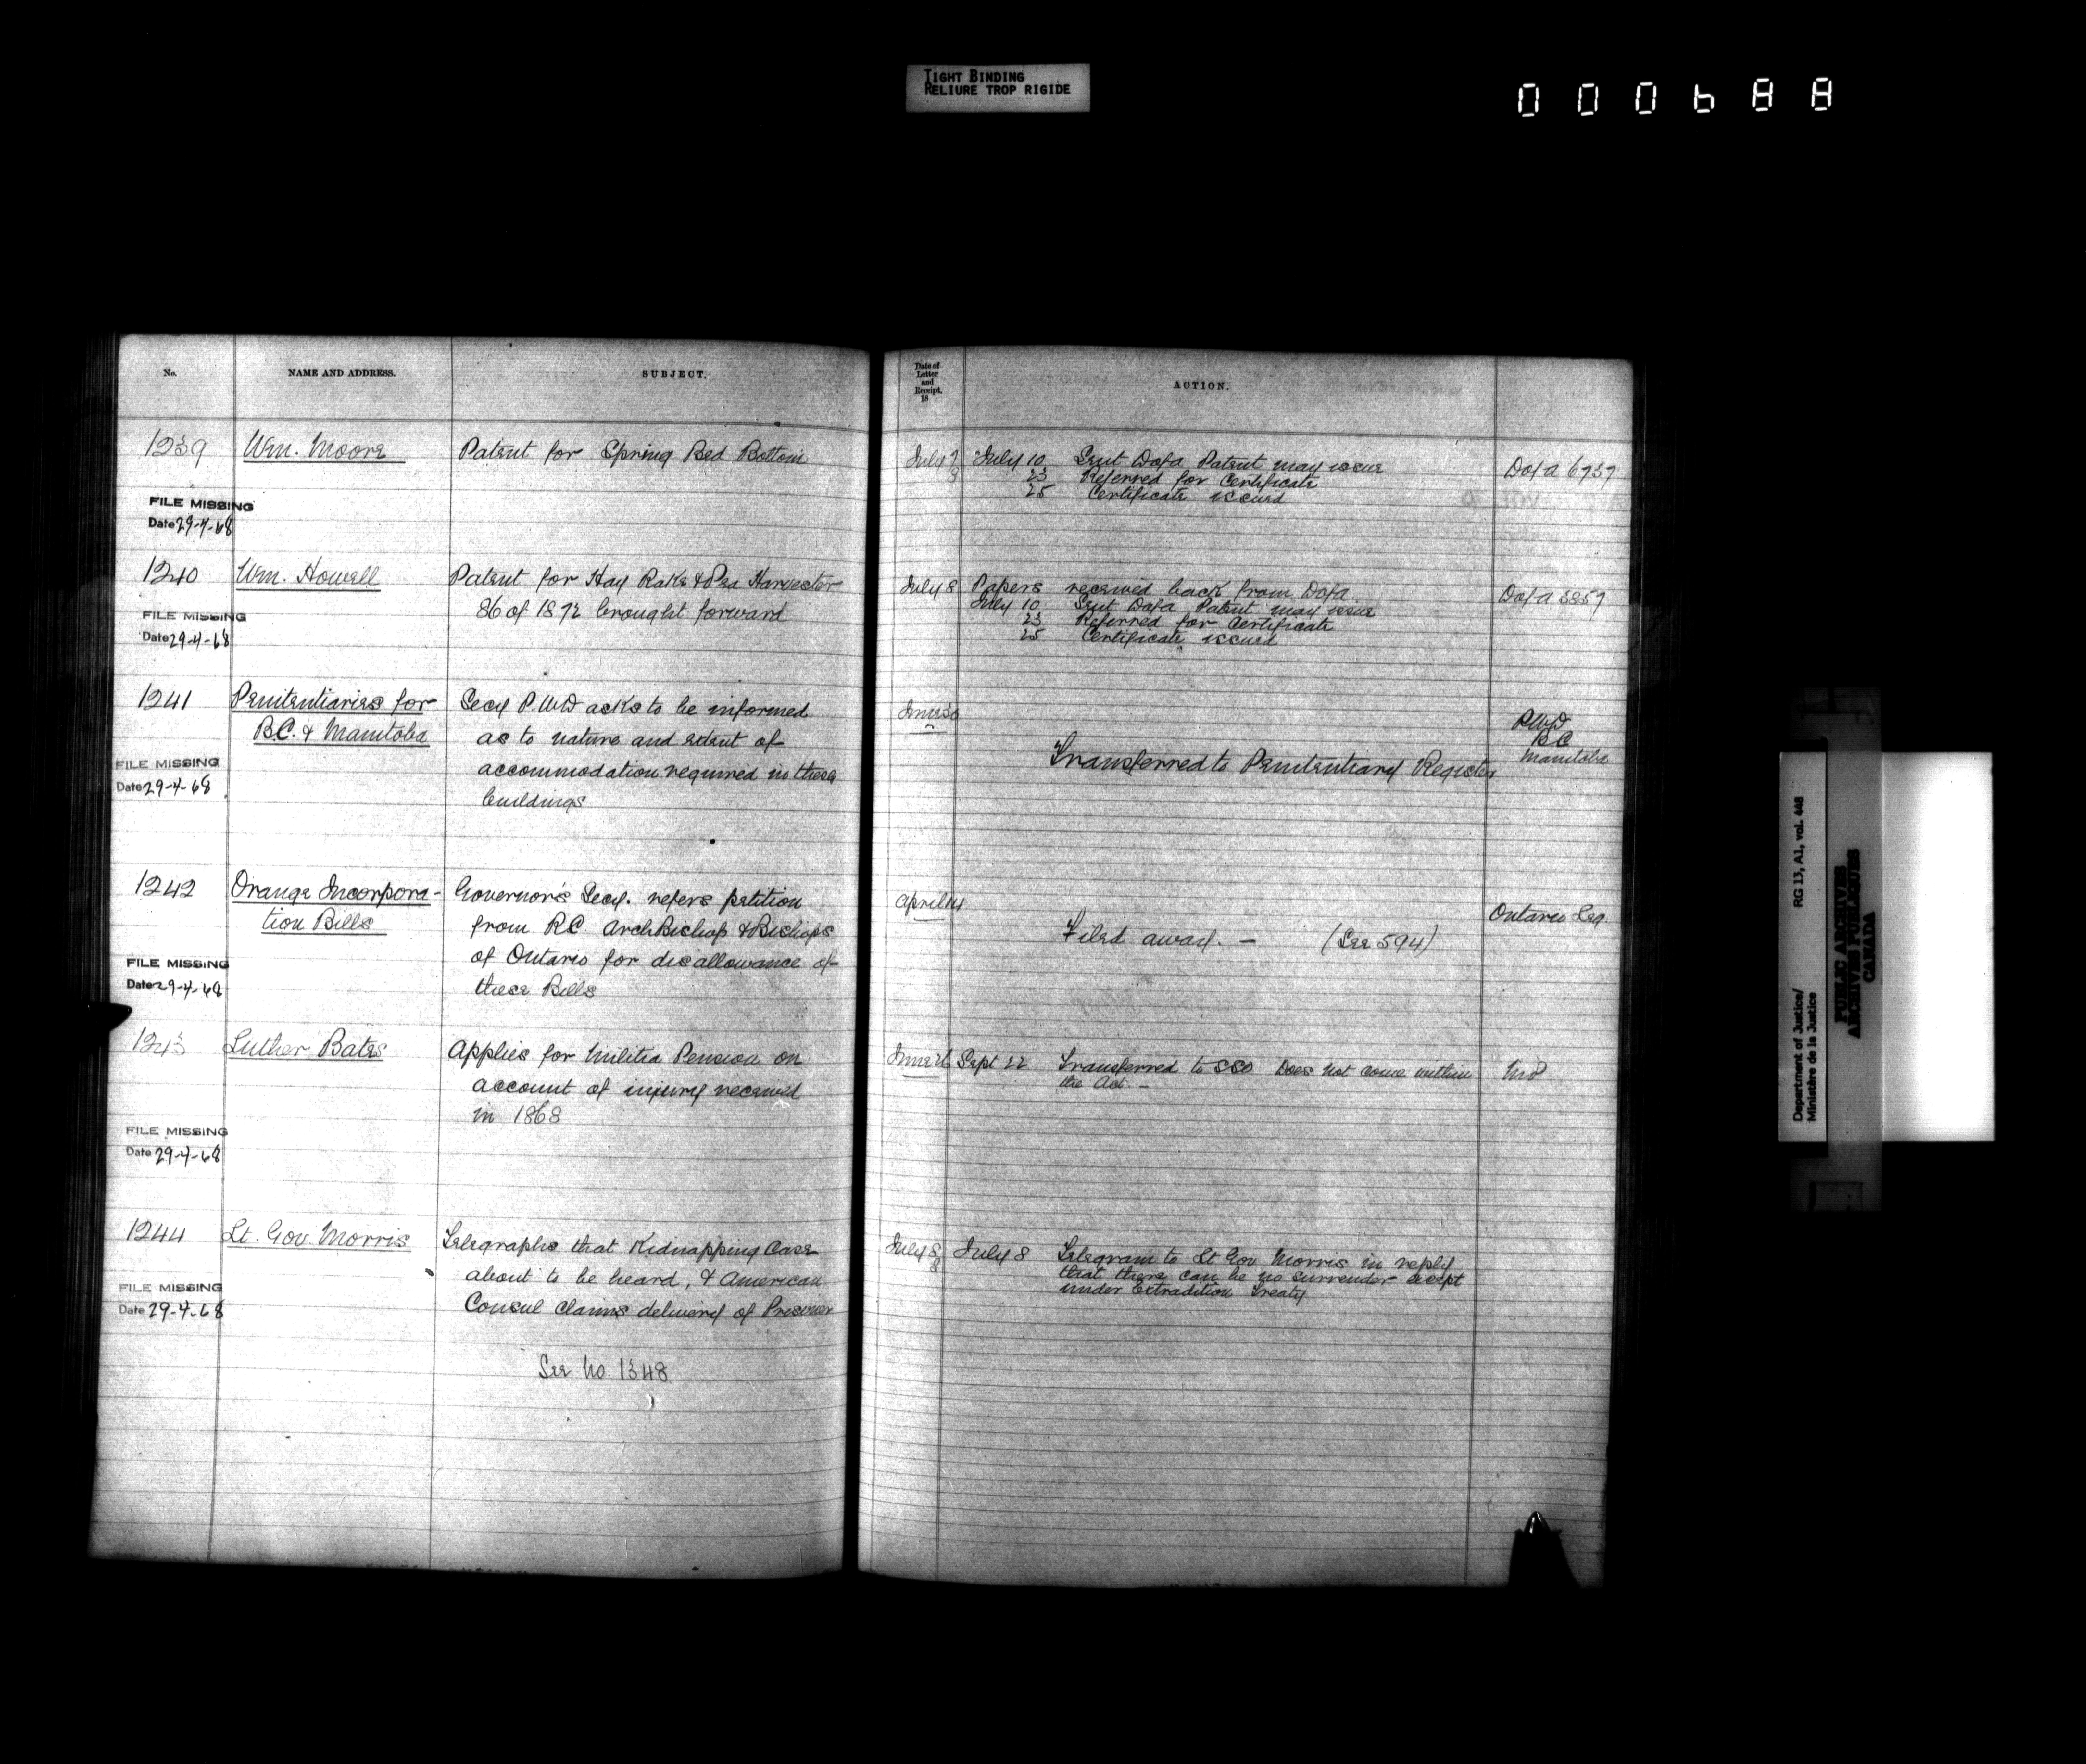 TIGHT BINDING
RELIURE TROP RIGIDE
000688
No.
NAME AND ADDRESS.
SUBJECT.
1239
Wm. Moore
Patent for Spring Bed Bottom
FILE MISSING
Date 29-4-68
1240
Wm. Howell
Patent for Hay Rake & Pea Harvester
86 of 1872 brought forward
FILE MISSING
Date 29-4-68
1241
Penitentiaries for
B.C. & Manitoba
Secy P.W.D asks to be informed
as to nature and extent of
accommodation required in these
buildings
FILE MISSING
Date 29-4-68
1242
Orange Incorpora-
tion Bills
Governor's Secy. refers petition
from RC. ArchBishop & Bishops
of Ontario for disallowance of
these Bills
FILE MISSING
Date 29-4-68
1243
Luther Bates
Applies for Militia Pension on
account of injury received
in 1868
FILE MISSING
Date 29-4-68
1244
Lt. Gov Morris
Telegraphs that Kidnapping Case
about to be heard, & American
Consul claims delivery of Prisoner
FILE MISSING
Date 29-4-68
See No 1348
Date of
Letter
and
Receipt.
18
ACTION.
July 7
8
July 10 Sent Dofa Patent may issue
23 Referred for Certificate
25 Certificate issued
Dofa 6737
July 8
Papers received back from Dofa
July 10 Sent Dofa Patent may issue
23 Referred for Certificate
25 Certificate issued
Dofa 5857
June 30
Transferred to Penitentiary Register
PWD
BC
Manitoba
April 14
Filed away. — (See 594)
Ontario Leg.
June 26
Sept 22 Transferred to SSD Does not come within
the Act. —
July 8
8
July 8 Telegram to Lt Gov Morris in reply
that there can be no surrender except
under Extradition Treaty
Department of Justice/
Ministère de la Justice
RG 13, A1, vol. 448
PUBLIC ARCHIVES
ARCHIVES PUBLIQUES
CANADA